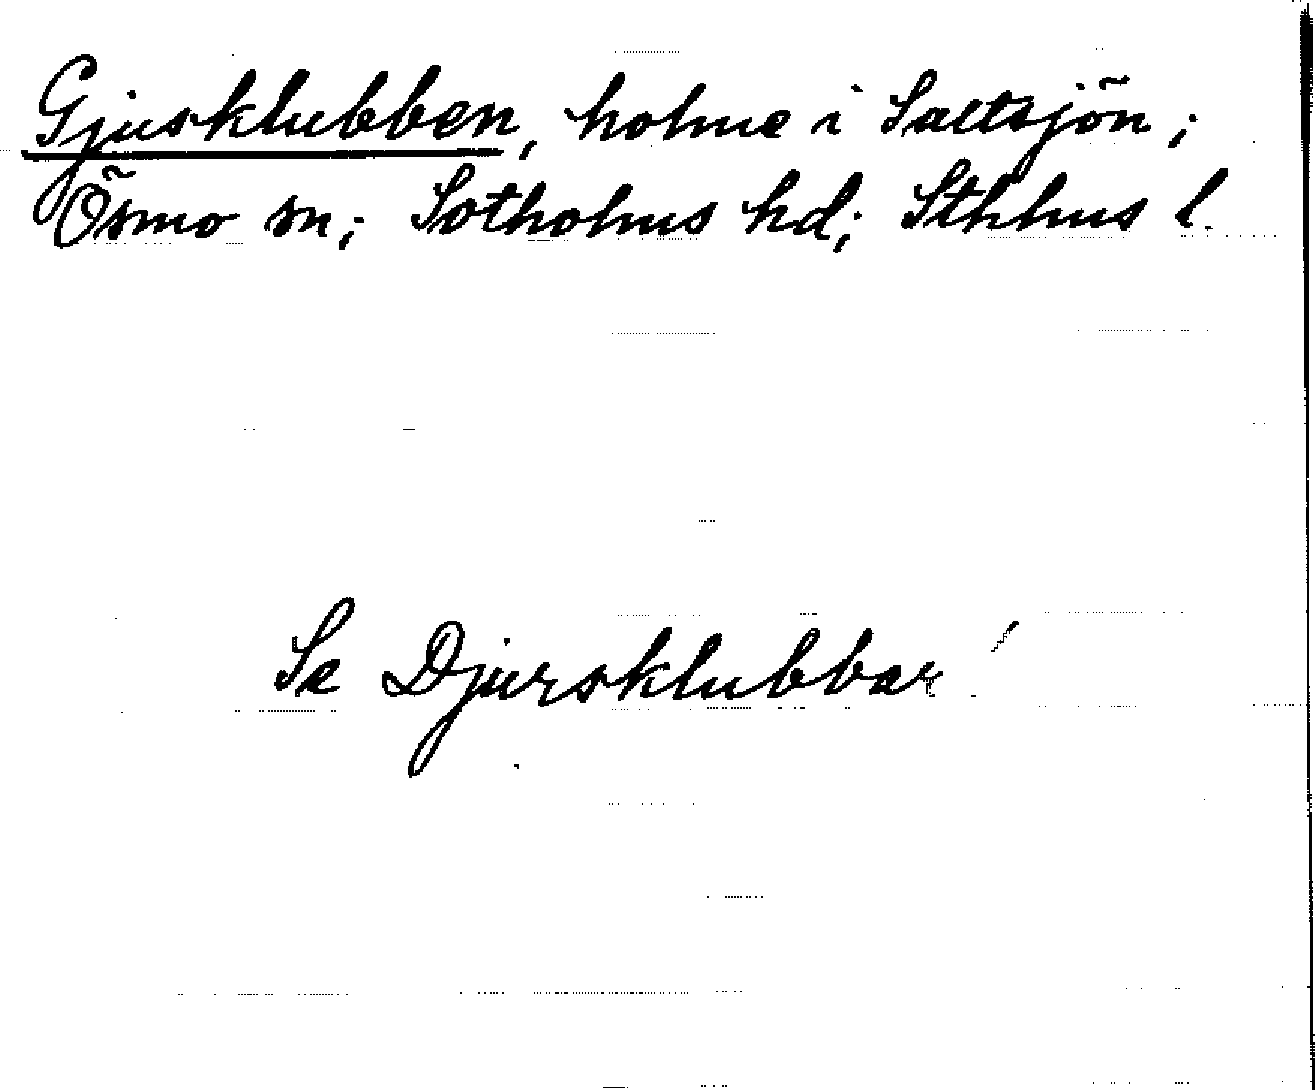 Gjusklubben, holme i Saltsjön;
Ösmo sn; Sotholms hd; Sthlms l.
Se Djursklubbar!